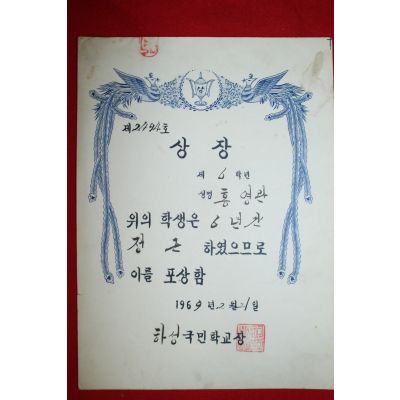 상
상장
제 6 학년
성명 홍영관
위의 학생은 6 년간
정 근 하였으므로
이를 포상함
1969 년 2 월 21 일
화성국민학교장